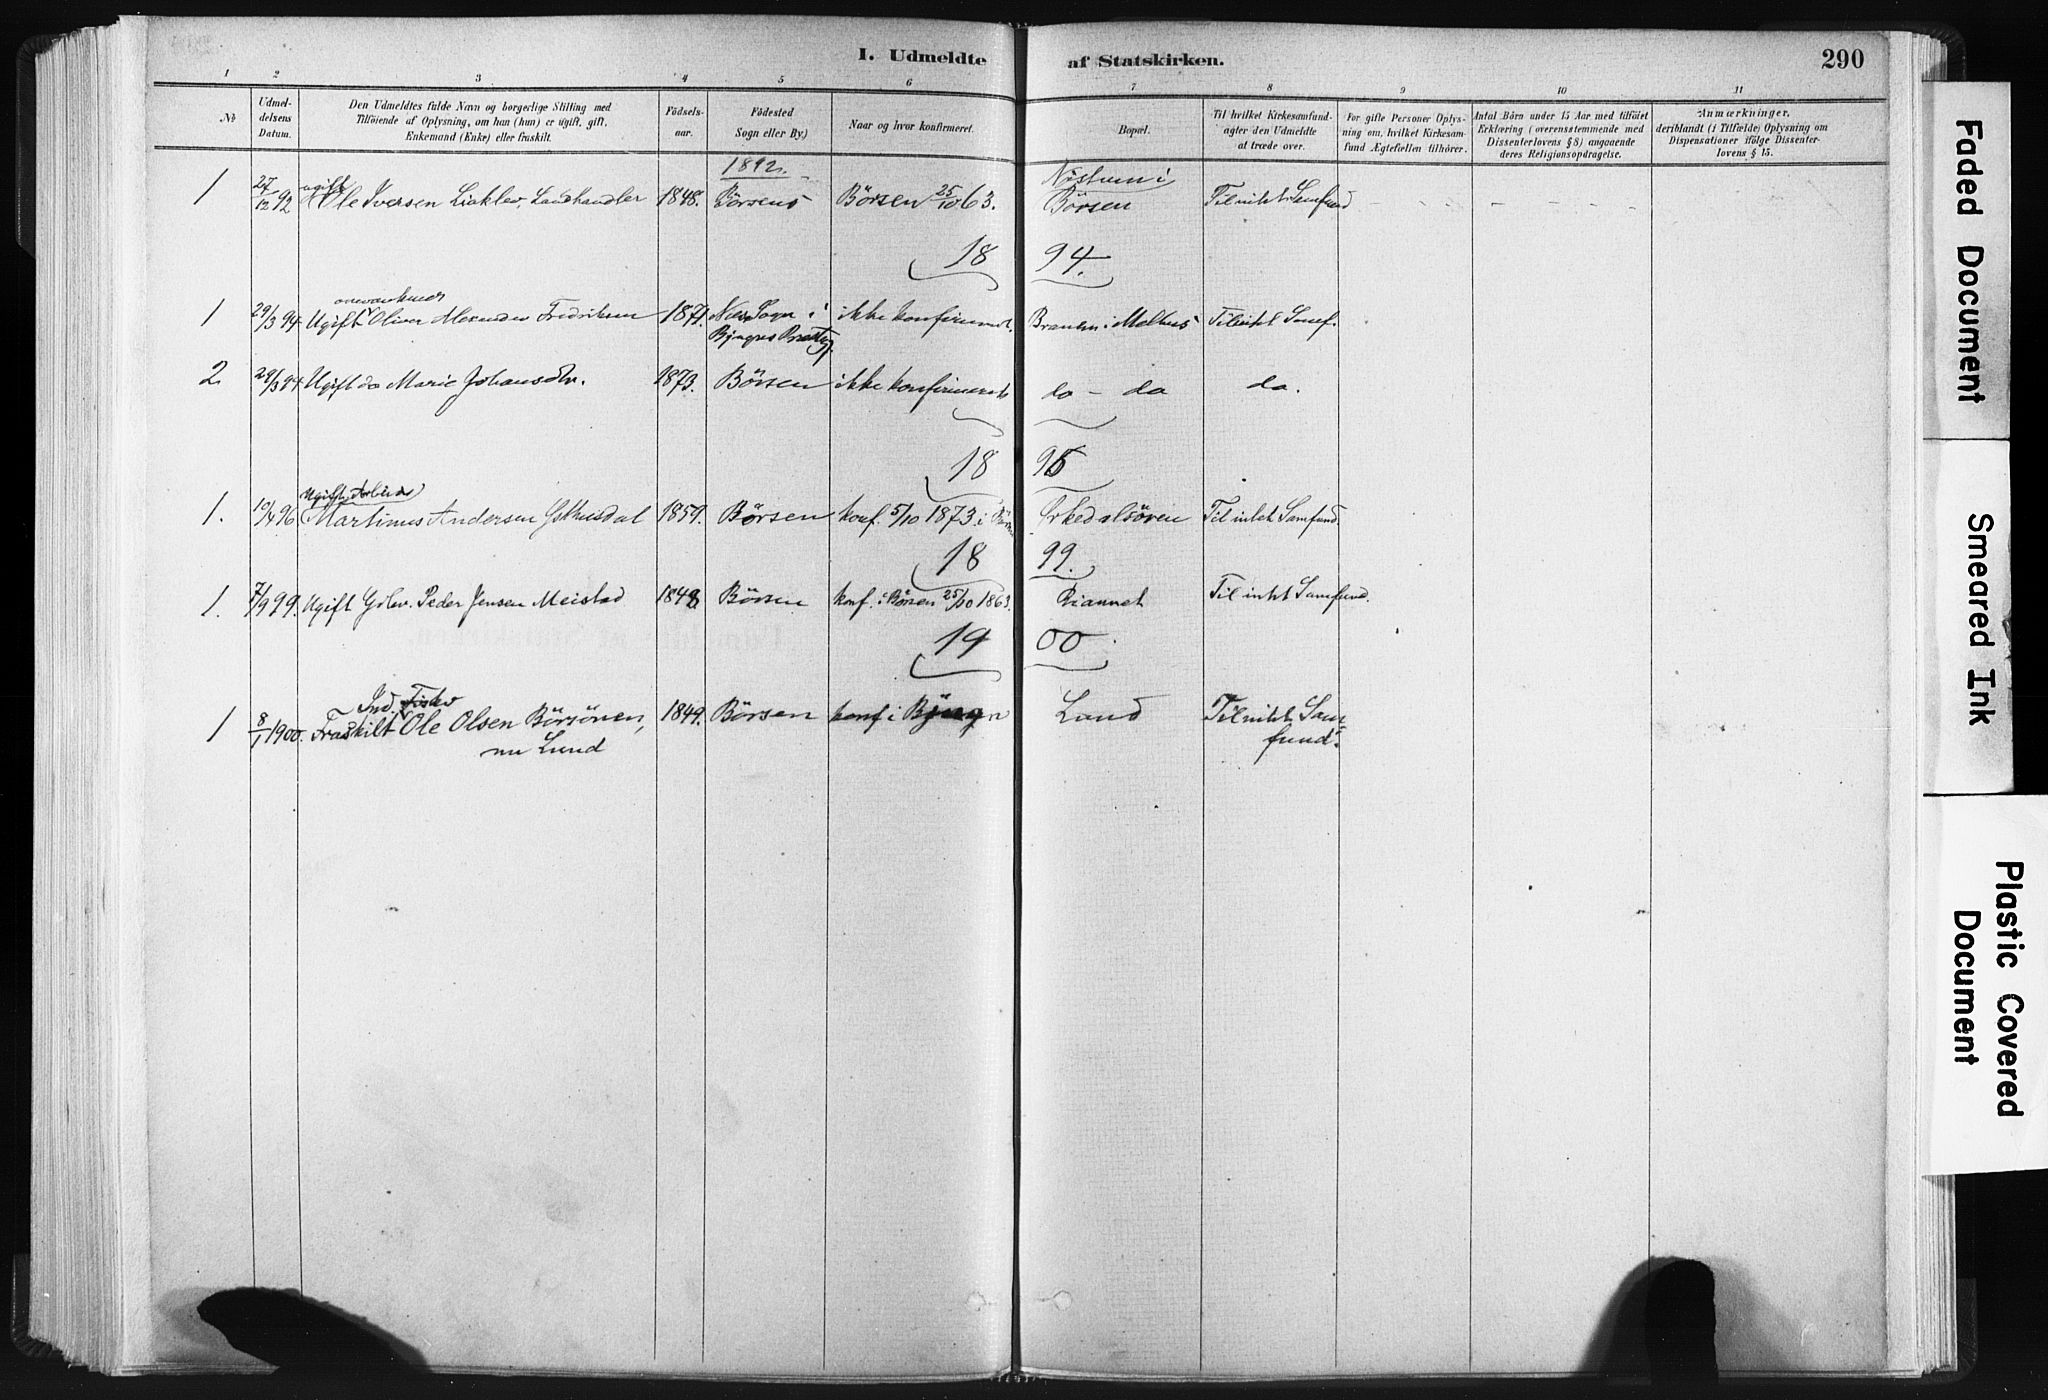 I. Udmeldte af Statskirken.
290
1 2 3 4 5 6 7 8 9 10 11
№
Udmel-
delsens
Datum.
Den Udmeldtes fulde Navn og borgerlige Stilling med
Tilføiende af Oplysning, om han (hun) er ugift, gift,
Enkemand (Enke) eller fraskilt.
Födsels-
aar.
Födested
Sogn eller By)
Naar og hvor konfirmeret.
Bopæl.
Til hvilket Kirkesamfund-
agter den Udmeldte
at træde over.
For gifte Personer Oplys-
ning om, hvilket Kirkesam-
fund Ægtefællen tilhörer.
Antal Börn under 15 Aar med tilföiet
Erklæring (overensstemmende med
Dissenterlovens § 8) angaaende
deres Religionsopdragelse.
Anmærkninger,
deriblandt (i Tilfælde) Oplysning om
Dispensationer ifölge Dissenter-
lovens § 15.
1892.
1 27/12 92 ugift Ole Iversen Landhandler 1848. Börsen 25/10 63. Börsen Til intet Samfund
1894.
1 29/3 94 Ugift Oliver Alexander Fredriksen 1871. Næs Sogn i ikke konfirmeret. i Melhus Til intet Samf.
2 29/3 94 Ugift do Marie Johansdtr. 1873. Börsen ikke konfirmeret do - do do.
18
1. 10/4 96 Ugift Martinus Andersen 1859. Börsen konf. 5/10 1873 i Til intet Samfund
1899.
1. 7/9 99. Ugift Peder Jensen Meistad 1848 Börsen konf. i Börsen 25/10 1863. Til intet Samfund.
1900
Ind. Fisker
1 8/1 1900. Fraskilt Ole Olsen Börsönen, 1849. Börsen konf i Til intet Sam-
nu Lund
fund.
Faded Document
Smeared Ink
Plastic Covered
Document